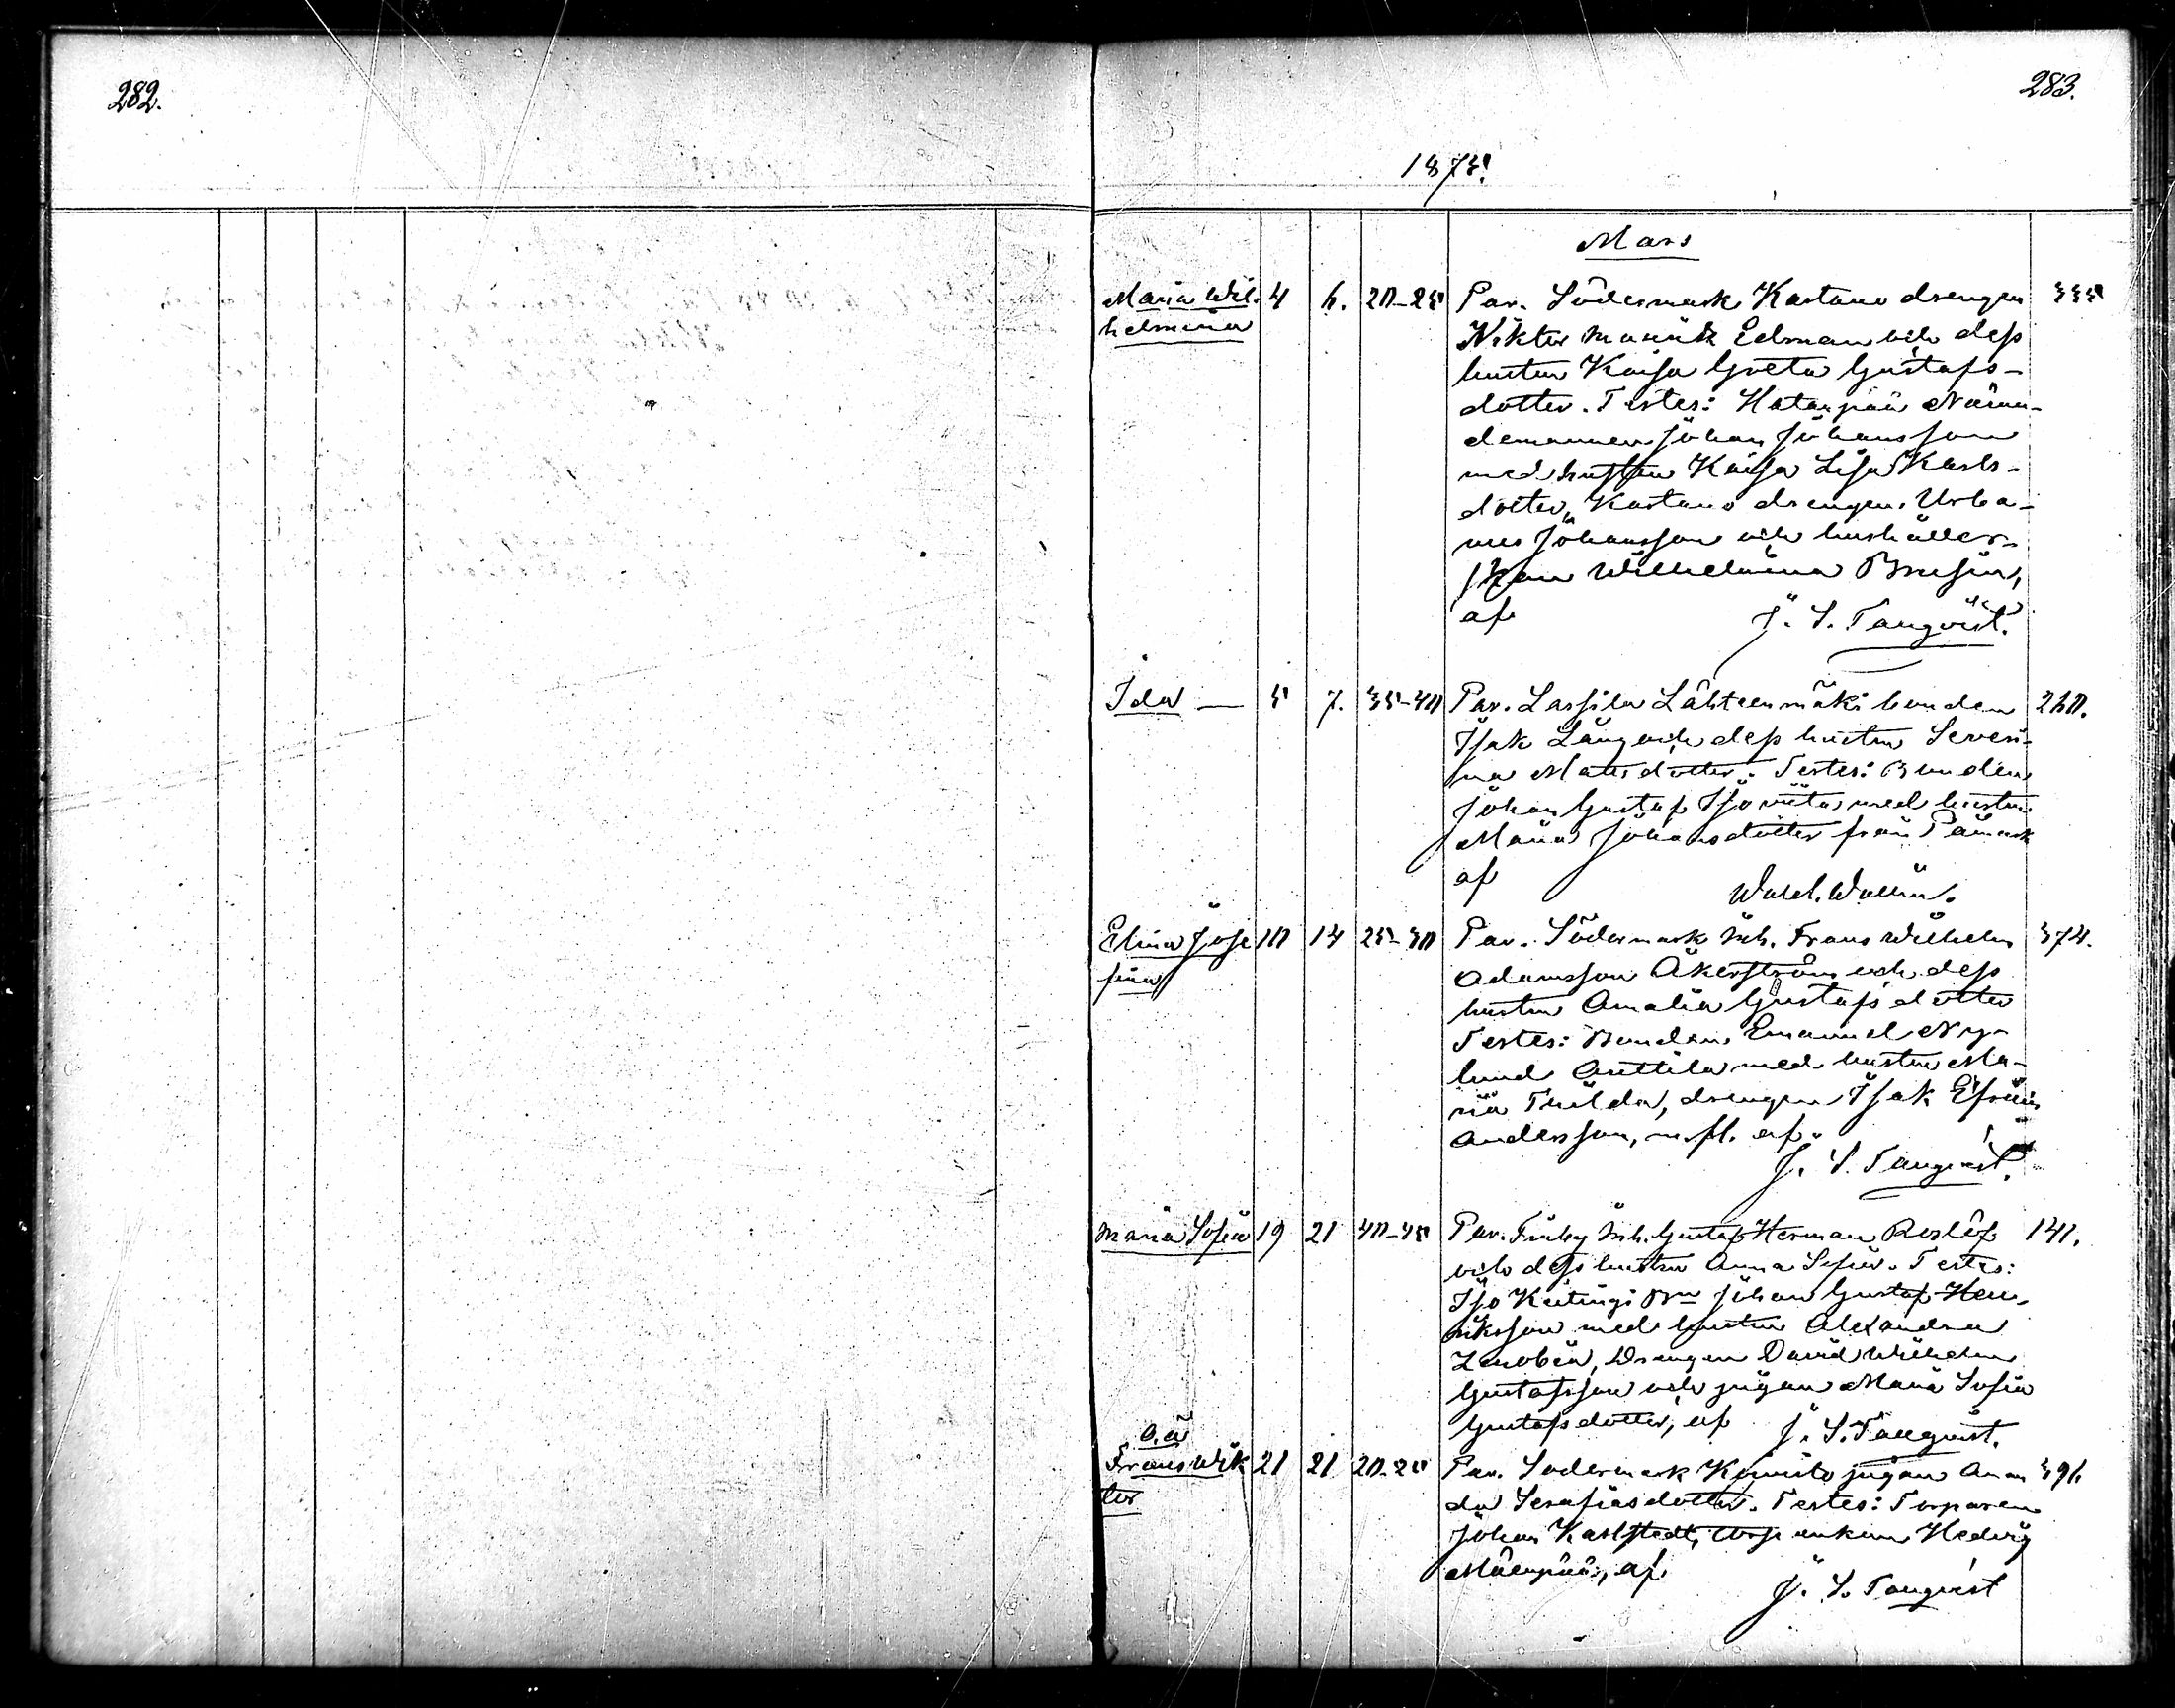 282.
283.
1875.
Mars
Maria Wil- 4 6. 20-25 Par. Södermark Kastano drengen 335
helmina Wiktor Maurik Edman och dess
hustru Kaisa Greta Gustafs-
dotter. Testes: Hatanpää Nämn-
demannen Johan Johansson
med hustru Kaisa Lisa Karls-
dotter, Kastano drengen Urba-
nus Johansson och hushåller-
skan Wilhelmina Brusin,
af J. S. Tanqvist.
Ida — 5 7. 35-40 Par. Lassila Lähteenmäki bonden 260.
Isak Lång och dess hustru Severi-
na Matsdotter. Testes: Bonden
Johan Gustaf Isoviita med hustru
Maria Johansdotter från Påmark
af Wald. Wallin.
Elina Jose 10 14 25-30 Par. Södermark Inh. Frans Wilhelm 374.
fina Adamsson Åkerström och dess
hustru Amalia Gustafsdotter
Testes: Bonden Emanuel Ny-
lund Anttila med hustru Ma-
ria Thilda, drengen Isak Efraim
Andersson, m. fl. af.
J. S. Tanqvist.
Maria Sofia 19 21 40-45 Par. Finby Inh. Gustaf Herman Roslöf 141.
och dess hustru Anna Sofia. Testes:
Iso Keitingi Bn Johan Gustaf Hen-
riksson med hustru Alexandra
Zenobia, Drengen David Wilhelm
Gustafsson och pigan Maria Sofia
Gustafsdotter, af J. S. Tanqvist.
o.ä
Frans Wik 21 21 20-25 Par. Södermark Koivisto pigan Aman 391.
tor da Serafiasdotter. Testes: Torparen
Johan Karlstedt, Torp enkan Hedvig
Mäenpää, af
J. S. Tanqvist